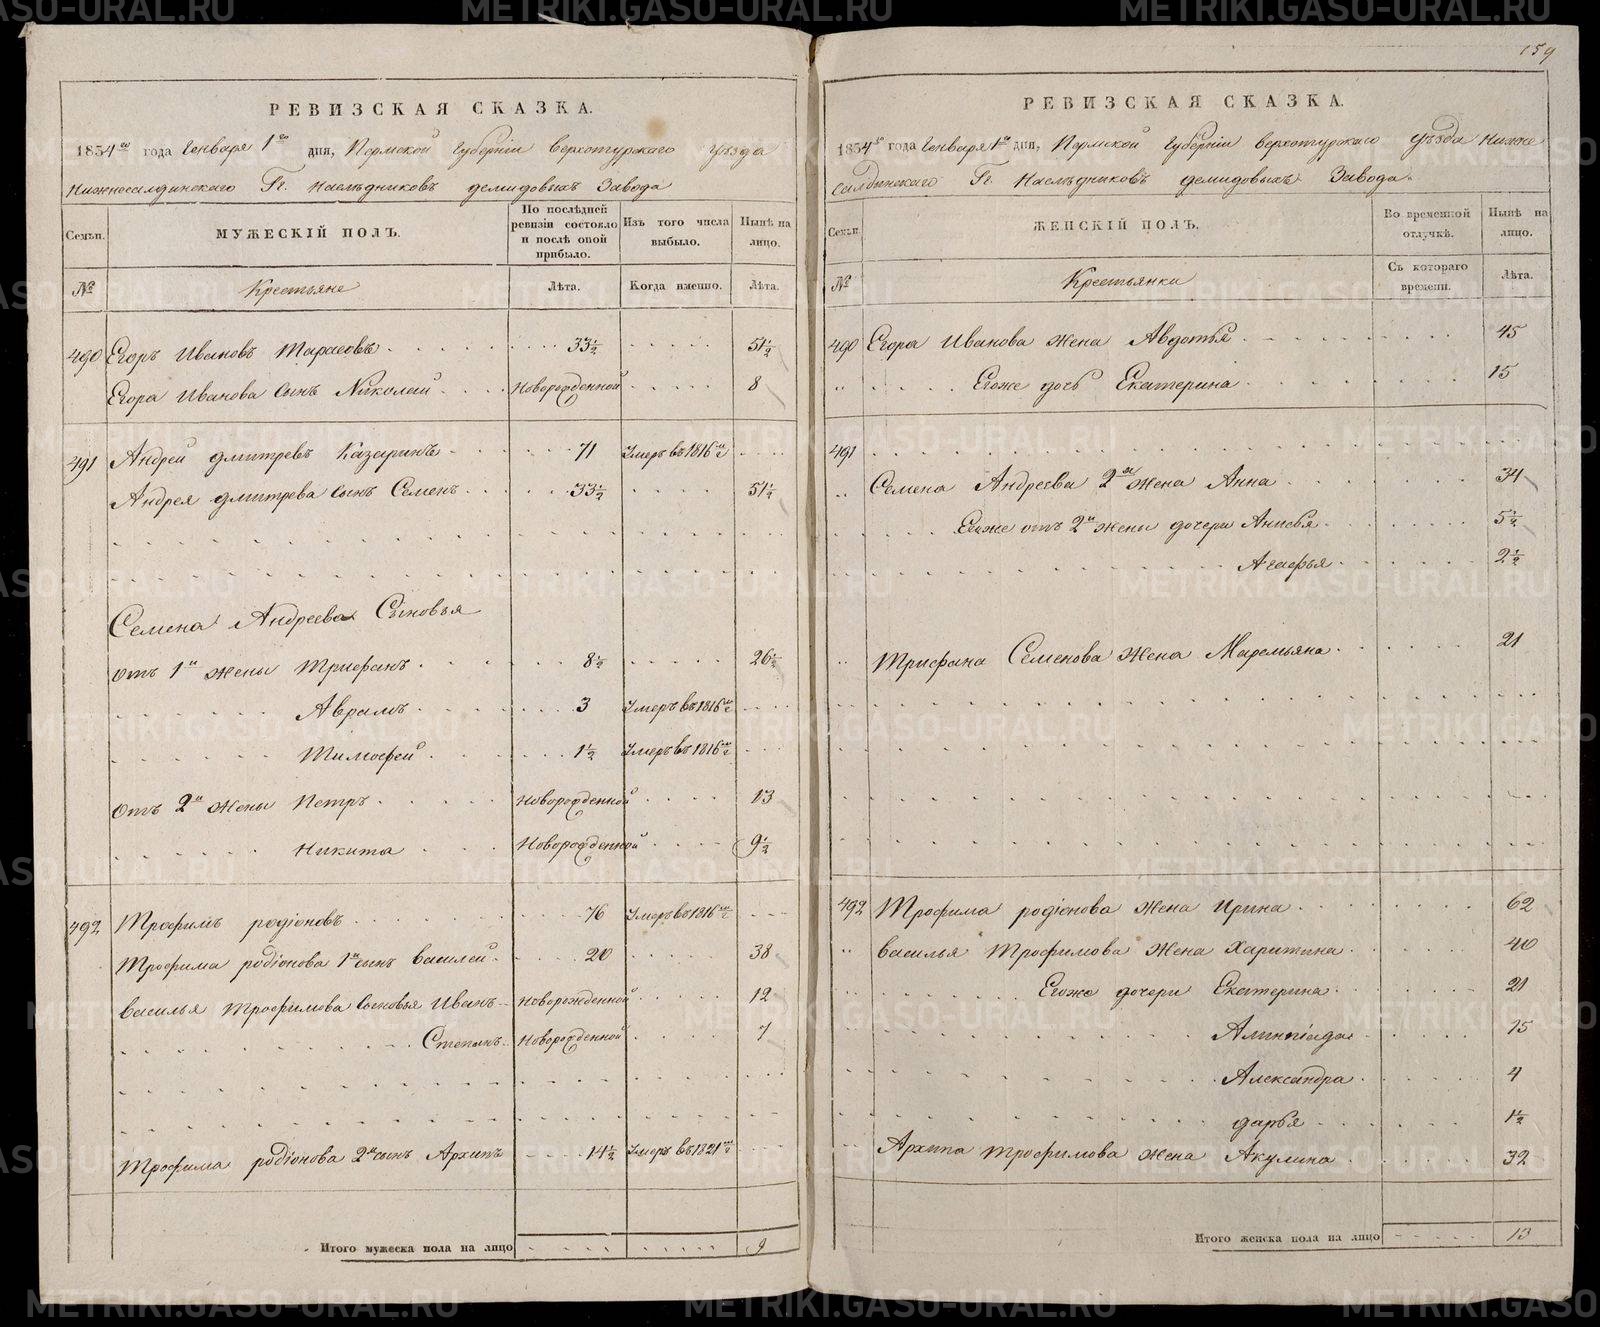 159
РЕВИЗСКАЯ СКАЗКА.
1834го года Генваря 1го дня, Пермской Губерніи верхотурскаго уѣзда
Нижносалдинскаго Гг. Наслѣдниковъ демидовыхъ Завода
Семьи. МУЖЕСКІЙ ПОЛЪ. По послѣдней ревизіи состояло и послѣ оной прибыло. Изъ того числа выбыло. Нынѣ на лицо.
№ Крестьяне Лѣта. Когда именно. Лѣта.
490 Егоръ Ивановъ Тарасовъ 33½ 51½
Егора Иванова Сынъ Николай Новорожденной 8
491 Андрей дмитревъ Казаринъ 71 Умеръ въ 1816м г
Андрея дмитрева сынъ Семенъ 33½ 51½
Семена Андреева Сыновья
отъ 1й жены Трифанъ 8½ 26½
Аврамъ 3 Умеръ въ 1816м г
Тимофей 1½ Умеръ въ 1816м г
Отъ 2й жены Петръ Новорожденной 13
Никита Новорожденной 9½
492 Трофимъ родіоновъ 76 Умеръ въ 1816м г
Трофима родіонова 1й сынъ василей 20 38
василья Трофимова сыновья Иванъ Новорожденной 12
Степанъ Новорожденной 7
Трофима родіонова 2й сынъ Архипъ 14½ Умеръ въ 1821м г
Итого мужеска пола на лицо 9
РЕВИЗСКАЯ СКАЗКА.
1834го года Генваря 1го дня, Пермской Губерніи верхотурскаго уѣзда Нижне
салдинскаго Гг. Наслѣдниковъ демидовыхъ Завода.
Семьи. ЖЕНСКІЙ ПОЛЪ. Во временной отлучкѣ. Нынѣ на лицо.
№ Крестьянки Съ котораго времени. Лѣта.
490 Егора Иванова жена Авдотья 45
Егоже дочь Екатерина 15
491
Семена Андреева 2я жена Анна 34
Егоже отъ 2й жены дочери Анисья 5½
Агафья 2½
Трифана Семенова жена Маремьяна 21
492 Трофима родіонова жена Ирина 62
василья Трофимова жена Харитина 40
Егоже дочери Екатерина 21
Алимпіада 15
Александра 4
дарья 1½
Архипа трофимова жена Акулина 32
Итого женска пола на лицо 13
METRIKI.GASO-URAL.RU